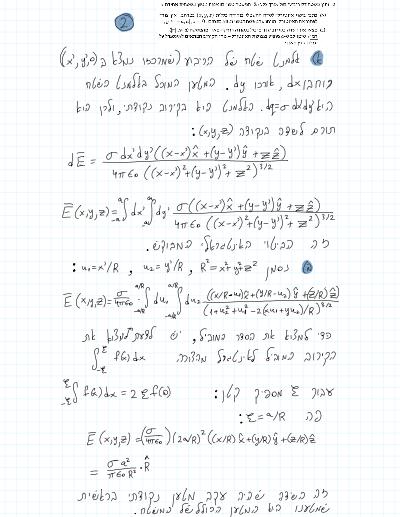 ②
א אלמנט שטח של הריבוע (שמרכזו נמצא ב (x',y',0))
רוחבו dx', אורכו dy'. המטען המוכל באלמנט השטח
הוא dq=σdx'dy'. האלמנט הוא בקירוב נקודתי, ולכן הוא
תורם לשדה בנקודה (x,y,z):
dE̅ = σ dx'dy'((x-x')x̂+(y-y')ŷ+zẑ) / 4πε₀((x-x')²+(y-y')²+z²)^{3/2}
E̅(x,y,z)=∫_{-a}^{a}dx'∫_{-a}^{a}dy' σ((x-x')x̂+(y-y')ŷ+zẑ) / 4πε₀((x-x')²+(y-y')²+z²)^{3/2}
זה הביטוי האינטגרלי המבוקש.
ב נסמן u₁=x'/R , u₂=y'/R , R²=x²+y²+z² :
E̅(x,y,z)=σ/4πε₀·∫_{-a/R}^{a/R}du₁∫_{-a/R}^{a/R}du₂ ((x/R-u₁)x̂+(y/R-u₂)ŷ+(z/R)ẑ) / (1+u₁²+u₂²-2(xu₁+yu₂)/R)^{3/2}
כדי למצוא את הסדר המוביל, יש לדעת למצוא את
הקירוב המוביל לאינטגרל מהצורה ∫_{-ξ}^{ξ} f(x)dx
עבור ξ מספיק קטן: ∫_{-ξ}^{ξ} f(x)dx = 2ξf(0)
פה ξ=a/R:
E̅(x,y,z)=(σ/4πε₀)(2a/R)²((x/R)x̂+(y/R)ŷ+(z/R)ẑ)
= σa²/πε₀R²·R̂
זה השדה שהיה עקב מטען נקודתי בראשית
שמטענו הוא המטען הכולל של המשטח.